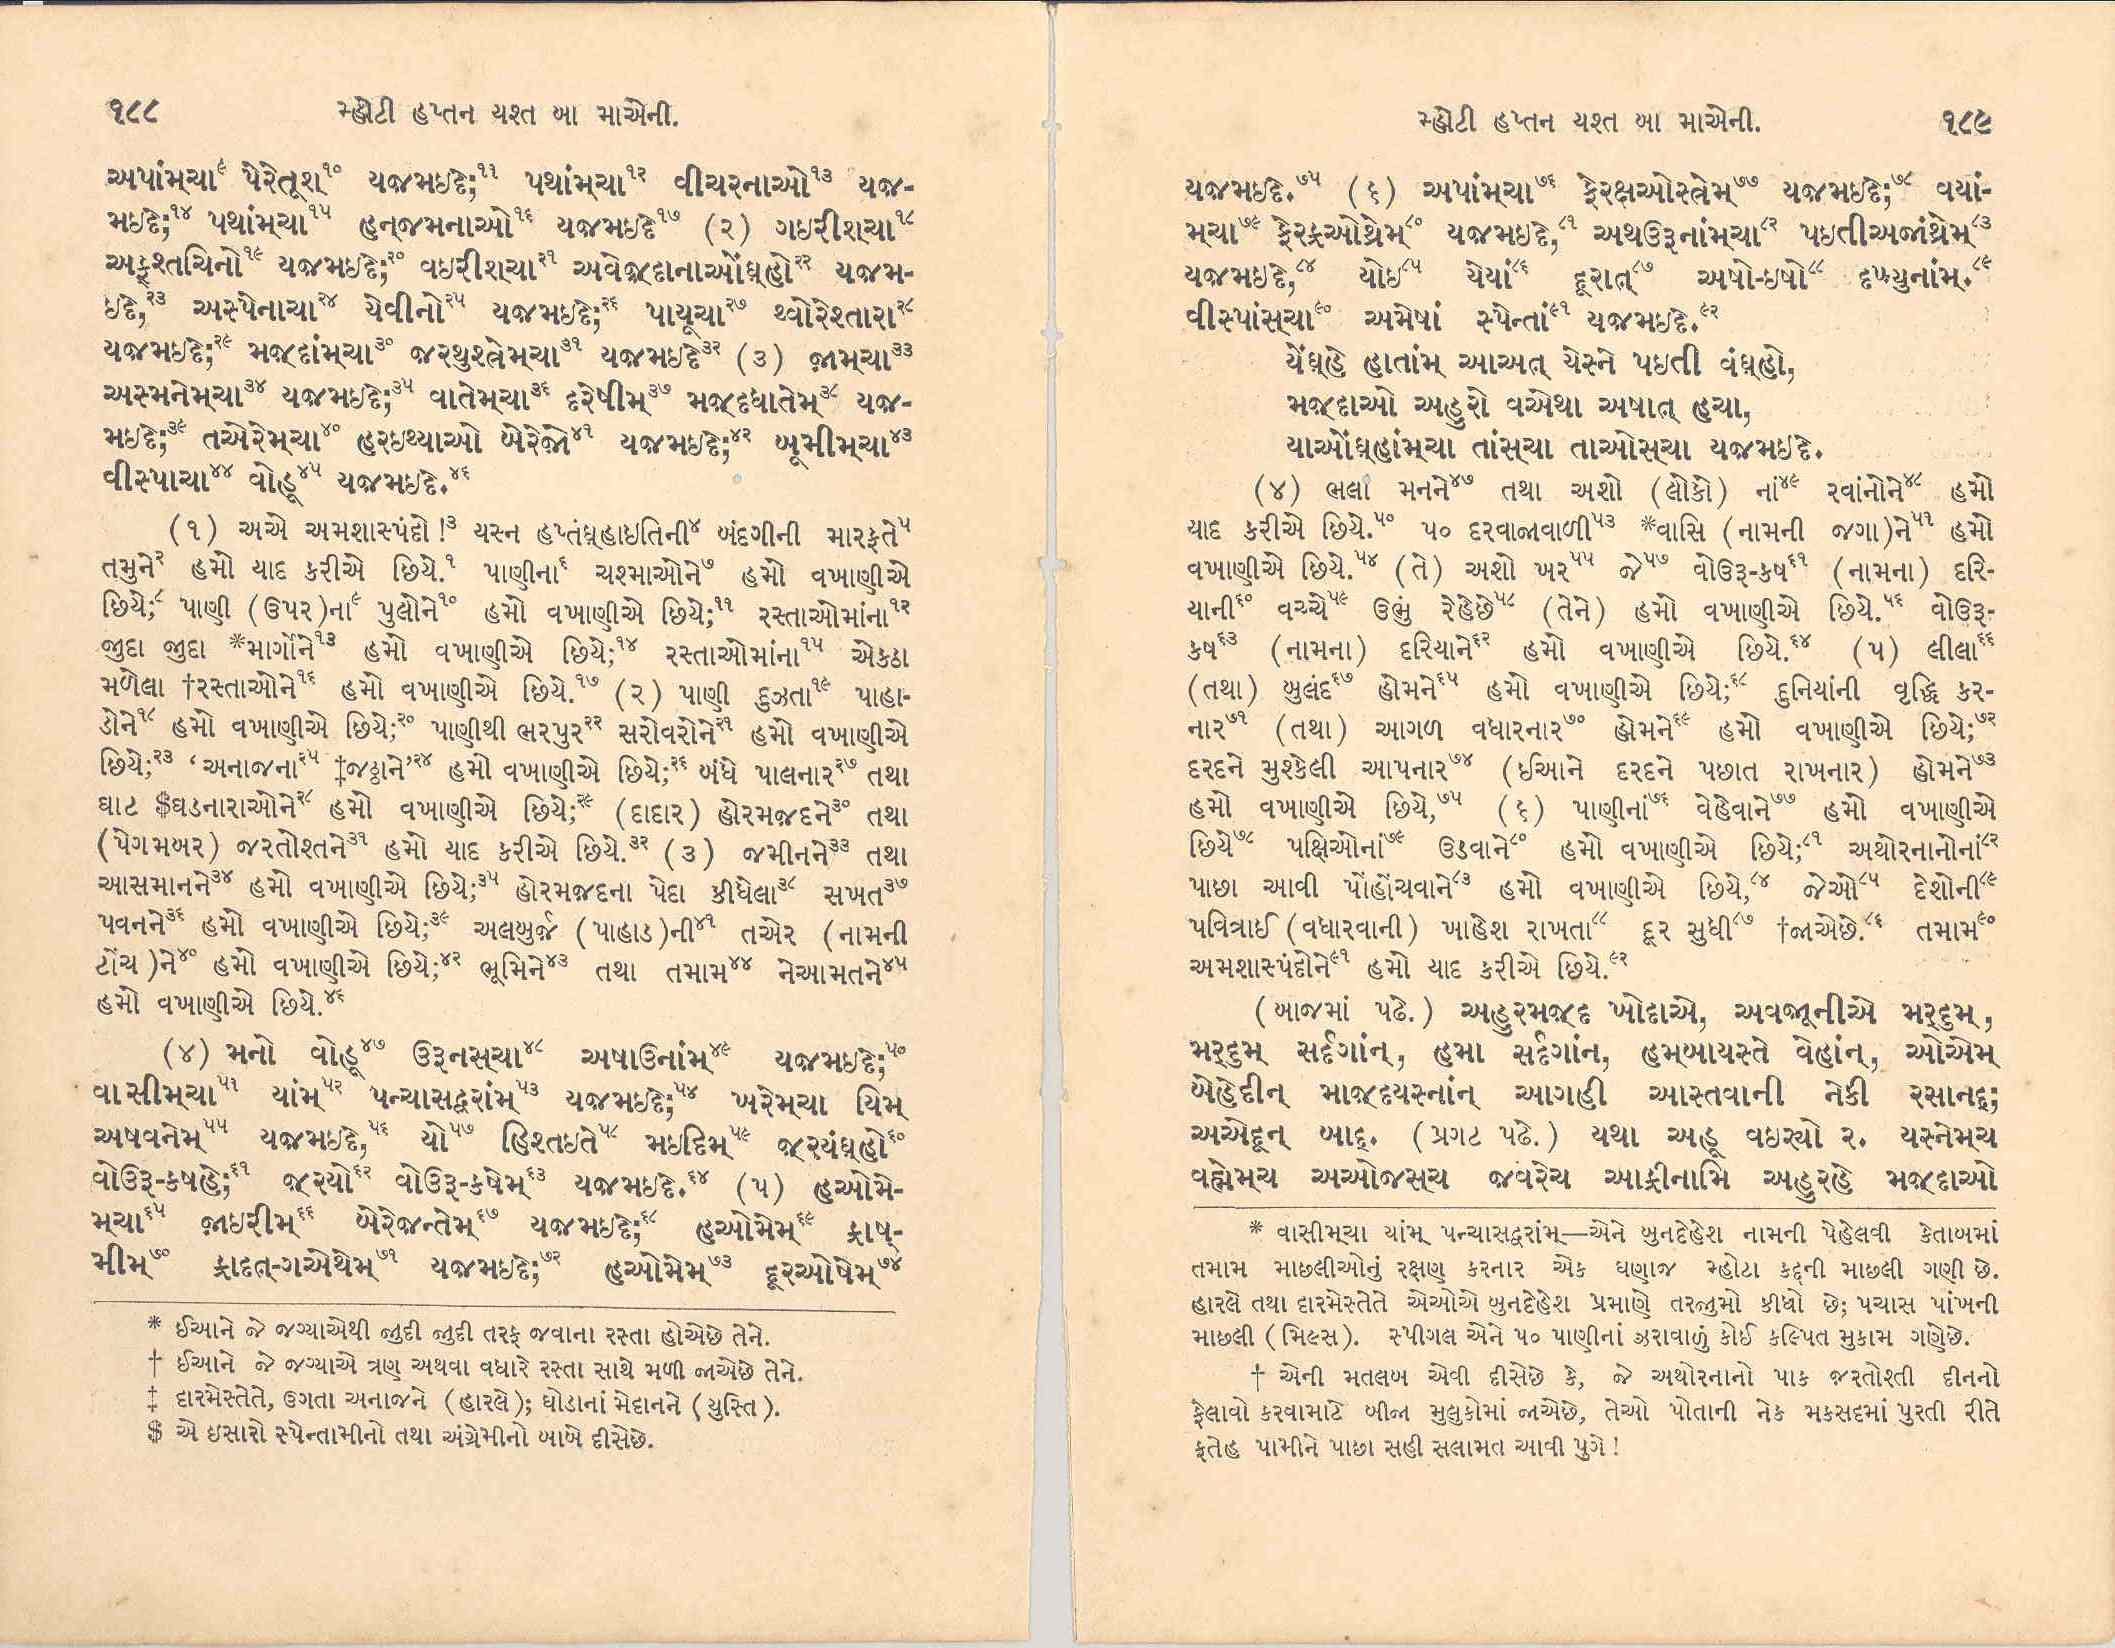 ૧૮૮ મ્હોટી હપ્તન યશ્ત બા માએની.
અપાંમ્ચા૯ પેરેતૂશ્૧૦ યજ઼મઇદે;૧૧ પથાંમ્ચા૧૨ વીચરનાઓ૧૩ યજ઼-
મઇદે;૧૪ પથાંમ્ચા૧૫ હન્જમનાઓ૧૬ યજ઼મઇદે૧૭ (૨) ગઇરીશ્ચા૧૮
અફ્શ્તચિનો૧૯ યજ઼મઇદે;૨૦ વઇરીશ્ચા૨૧ અવેજ઼્દાનાઓંઘ્હો૨૨ યજ઼મ-
ઇદે;૨૩ અસ્પેનાચા૨૪ યેવીનો૨૫ યજ઼મઇદે;૨૬ પાયૂચા૨૭ થ્વોરેશ્તારા૨૮
યજ઼મઇદે;૨૯ મજ઼્દાંમ્ચા૩૦ જ઼રથુશ્ત્રેમ્ચા૩૧ યજ઼મઇદે૩૨ (૩) જ઼ામ્ચા૩૩
અસ્મનેમ્ચા૩૪ યજ઼મઇદે;૩૫ વાતેમ્ચા૩૬ દરેષીમ્૩૭ મજ઼્દધાતેમ્૩૮ યજ઼-
મઇદે;૩૯ તએરેમ્ચા૪૦ હરઇથ્યાઓ બેરેજ઼ો૪૧ યજ઼મઇદે;૪૨ બૂમીમ્ચા૪૩
વીસ્પાચા૪૪ વોહૂ૪૫ યજ઼મઇદે.૪૬
(૧) અએ અમશાસ્પંદો!૩ યસ્ન હપ્તંઘ્હાઇતિની૪ બંદગીની મારફતે૫
તમુને૨ હમો યાદ કરીએ છિયે.૧ પાણીના૬ ચશ્માઓને૭ હમો વખાણીએ
છિયે;૮ પાણી (ઉપર)ના૯ પુલોને૧૦ હમો વખાણીએ છિયે;૧૧ રસ્તાઓમાંના૧૨
જુદા જુદા *માર્ગોને૧૩ હમો વખાણીએ છિયે;૧૪ રસ્તાઓમાંના૧૫ એકઠા
મળેલા †રસ્તાઓને૧૬ હમો વખાણીએ છિયે.૧૭ (૨) પાણી દુઝતા૧૯ પાહા-
ડોને૧૮ હમો વખાણીએ છિયે;૨૦ પાણીથી ભરપુર૨૨ સરોવરોને૨૧ હમો વખાણીએ
છિયે;૨૩ ‘અનાજના૨૫ ‡જઠ્ઠાને’૨૪ હમો વખાણીએ છિયે;૨૬ બંધે પાલનાર૨૭ તથા
ઘાટ $ઘડનારાઓને૨૮ હમો વખાણીએ છિયે;૨૯ (દાદાર) હોરમજ઼દને૩૦ તથા
(પેગમબર) જરતોશ્તને૩૧ હમો યાદ કરીએ છિયે.૩૨ (૩) જમીનને૩૩ તથા
આસમાનને૩૪ હમો વખાણીએ છિયે;૩૫ હોરમજ઼દના પેદા કીધેલા૩૮ સખત૩૭
પવનને૩૬ હમો વખાણીએ છિયે;૩૯ અલબુર્જ઼ (પાહાડ)ની૪૧ તએર (નામની
ટોંચ)ને૪૦ હમો વખાણીએ છિયે;૪૨ ભૂમિને૪૩ તથા તમામ૪૪ નેઆમતને૪૫
હમો વખાણીએ છિયે.૪૬
(૪) મનો વોહૂ૪૭ ઉરૂનસ્ચા૪૮ અષાઉનાંમ્૪૯ યજ઼મઇદે;૫૦
વાસીમ્ચા૫૧ યાંમ્૫૨ પન્ચાસદ્વરાંમ્૫૩ યજ઼મઇદે;૫૪ ખરેમ્ચા યિમ્
અષવનેમ્૫૫ યજ઼મઇદે,૫૬ યો૫૭ હિશ્તઇતે૫૮ મઇદિમ્૫૯ જ઼્રયંઘ્હો૬૦
વોઉરૂ-કષહે;૬૧ જ઼્રયો૬૨ વોઉરૂ-કષેમ્૬૩ યજ઼મઇદે.૬૪ (૫) હઓમે-
મ્ચા૬૫ જ઼ાઇરીમ્૬૬ બેરેજ઼ન્તેમ્૬૭ યજ઼મઇદે;૬૮ હઓમેમ્૬૯ ફ્રાષ્-
મીમ્૭૦ ફ્રાદત્-ગએથેમ્૭૧ યજ઼મઇદે;૭૨ હઓમેમ્૭૩ દૂરઓષેમ્૭૪
* ઈઆને જે જગ્યાએથી જુદી જુદી તરફ જવાના રસ્તા હોએછે તેને.
† ઈઆને જે જગ્યાએ ત્રણ અથવા વધારે રસ્તા સાથે મળી જાએછે તેને.
‡ દારમેસ્તેતે, ઉગતા અનાજને (હારલે); ઘોડાનાં મેદાનને (યુસ્તિ).
$ એ ઇસારો સ્પેન્તામીનો તથા અંગ્રેમીનો બાબે દીસેછે.
મ્હોટી હપ્તન યશ્ત બા માએની. ૧૮૯
યજ઼મઇદે.૭૫ (૬) અપાંમ્ચા૭૬ ફેરક્ષઓસ્ત્રેમ્૭૭ યજ઼મઇદે;૭૮ વયાં-
મ્ચા૭૯ ફેરફ્રઓથ્રેમ્૮૦ યજ઼મઇદે,૮૧ અથઉરૂનાંમ્ચા૮૨ પઇતીઅજાંથ્રેમ્૮૩
યજ઼મઇદે,૮૪ યોઇ૮૫ યેયાં૮૬ દૂરાત્૮૭ અષો-ઇષો૮૮ દખ્યુનાંમ્.૮૯
વીસ્પાંસ્ચા૯૦ અમેષાં સ્પેન્તાં૯૧ યજ઼મઇદે.૯૨
યેંઘ્હે હાતાંમ્ આઅત્ યેસ્ને પઇતી વંઘ્હો,
મજ઼્દાઓ અહુરો વએથા અષાત્ હચા,
યાઓંઘ્હાંમ્ચા તાંસ્ચા તાઓસ્ચા યજ઼મઇદે.
(૪) ભલા મનને૪૭ તથા અશો (લોકો) નાં૪૯ રવાંનોને૪૮ હમો
યાદ કરીએ છિયે.૫૦ ૫૦ દરવાજાવાળી૫૩ *વાસિ (નામની જગા)ને૫૧ હમો
વખાણીએ છિયે.૫૪ (તે) અશો ખર૫૫ જે૫૭ વોઉરૂ-કષ૬૧ (નામના) દરિ-
યાની૬૦ વચ્ચે૫૯ ઉભું રેહેછે૫૮ (તેને) હમો વખાણીએ છિયે.૫૬ વોઉરૂ-
કષ૬૩ (નામના) દરિયાને૬૨ હમો વખાણીએ છિયે.૬૪ (૫) લીલા૬૬
(તથા) બુલંદ૬૭ હોમને૬૫ હમો વખાણીએ છિયે;૬૮ દુનિયાંની વૃદ્ધિ કર-
નાર૭૧ (તથા) આગળ વધારનાર૭૦ હોમને૬૯ હમો વખાણીએ છિયે;૭૨
દરદને મુશ્કેલી આપનાર૭૪ (ઈઆને દરદને પછાત રાખનાર) હોમને૭૩
હમો વખાણીએ છિયે,૭૫ (૬) પાણીનાં૭૬ વેહેવાને૭૭ હમો વખાણીએ
છિયે૭૮ પક્ષિઓનાં૭૯ ઉડવાને૮૦ હમો વખાણીએ છિયે;૮૧ અથોરનાનોનાં૮૨
પાછા આવી પોંહોંચવાને૮૩ હમો વખાણીએ છિયે,૮૪ જેઓ૮૫ દેશોની૮૯
પવિત્રાઈ (વધારવાની) ખાહેશ રાખતા૮૮ દૂર સુધી૮૭ †જાએછે.૮૬ તમામ૯૦
અમશાસ્પંદોને૯૧ હમો યાદ કરીએ છિયે.૯૨
(બાજમાં પઢે.) અહુરમજ઼્દ ખોદાએ, અવજ઼ૂનીએ મર્દુમ્,
મર્દુમ્ સર્દગાંન્, હમા સર્દગાંન, હમબાયસ્તે વેહાંન્, ઓએમ્
બેહેદીન્ માજ઼્દયસ્નાંન્ આગહી આસ્તવાની નેકી રસાનદ્;
અએદૂન્ બાદ્. (પ્રગટ પઢે.) યથા અહૂ વઇર્યો ૨. યસ્નેમ્ચ
વહ્મેમ્ચ અઓજસ્ચ જ઼વરેચ આફ્રીનામિ અહુરહે મજ઼્દાઓ
* વાસીમ્ચા યાંમ્ પન્ચાસદ્વરાંમ્—એને બુનદેહેશ નામની પેહેલવી કેતાબમાં
તમામ માછલીઓનું રક્ષણ કરનાર એક ઘણાજ મ્હોટા કદ્દની માછલી ગણી છે.
હારલે તથા દારમેસ્તેતે એઓએ બુનદેહેશ પ્રમાણે તરજુમો કીધો છે; પચાસ પાંખની
માછલી (મિલ્સ). સ્પીગલ એને ૫૦ પાણીનાં ઝરાવાળું કોઈ કલ્પિત મુકામ ગણેછે.
† એની મતલબ એવી દીસેછે કે, જે અથોરનાનો પાક જ઼રતોશ્તી દીનનો
ફેલાવો કરવામાટે બીજા મુલુકોમાં જાએછે, તેઓ પોતાની નેક મકસદમાં પુરતી રીતે
ફતેહ પામીને પાછા સહી સલામત આવી પુગે!